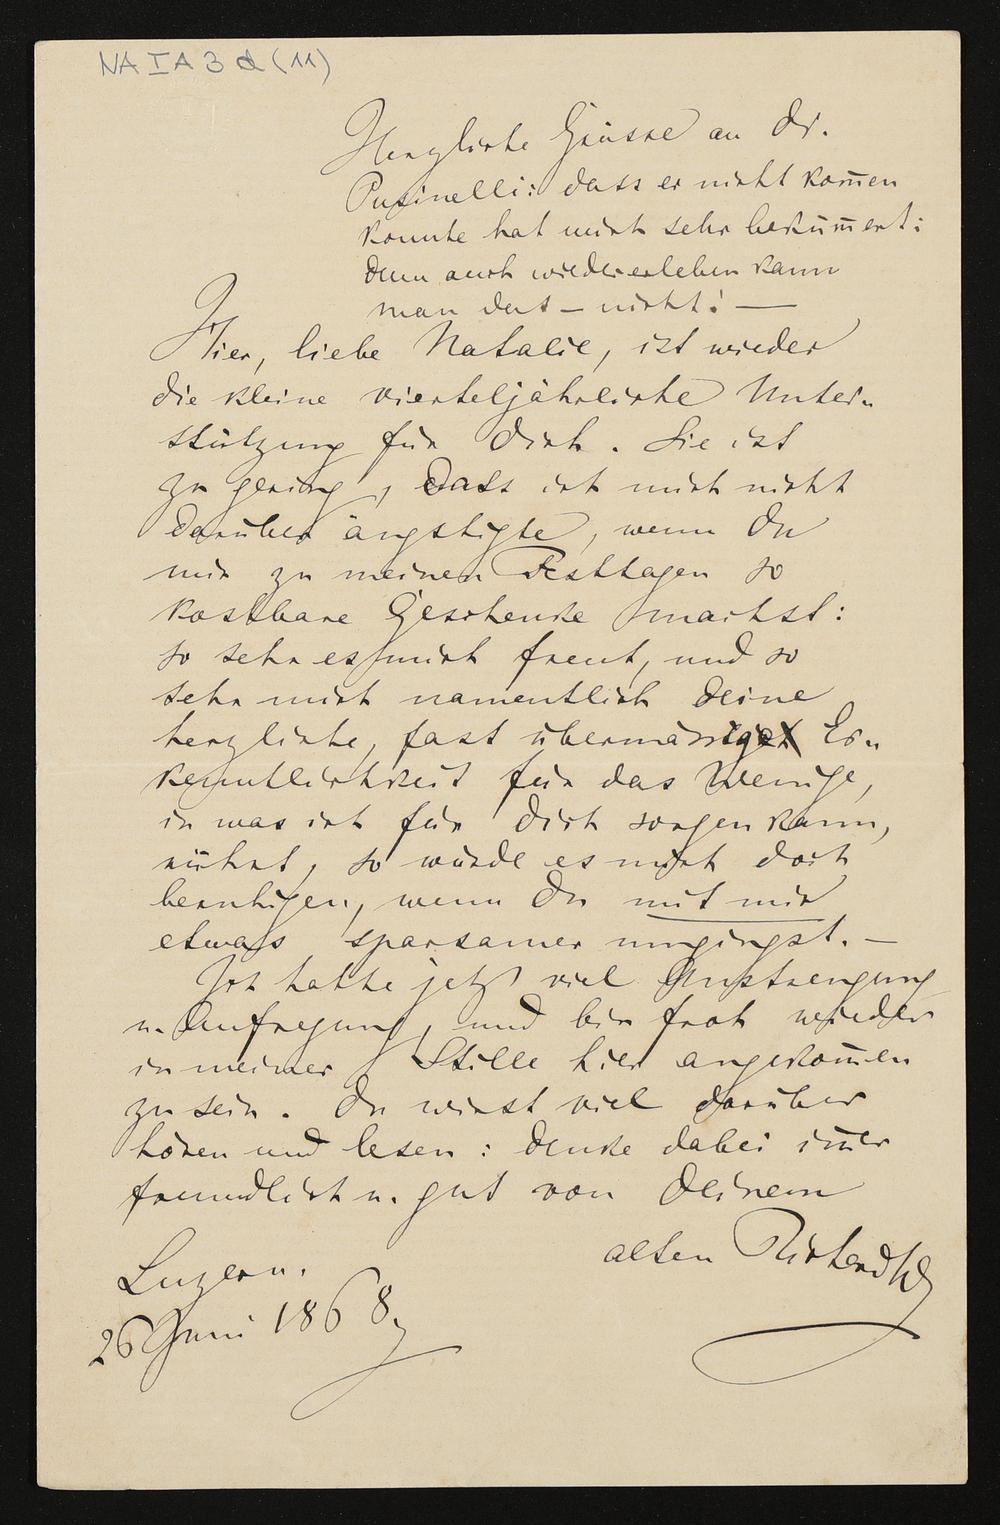 NA I A 3 d (11)
Herzliche Grüsse an Dr.
Pusinelli: dass er nicht kom̄en
konnte hat mich sehr beküm̄ert:
denn auch wiedererleben kann
man das – nicht! —
Hier, liebe Natalie, ist wieder
die kleine vierteljährliche Unter-
stützung für Dich. Sie ist
zu gering, dass ich mich nicht
darüber ängstigte, wenn Du
mir zu meinen Festtagen so
kostbare Geschenke machst:
so sehr es mich freut, und so
sehr mich namentlich Deine
herzliche, fast übermässige Er-
kenntlichkeit für das Wenige,
in was ich für Dich sorgen kann,
rührt, so würde es mich doch
beruhigen, wenn Du mit mir
etwas sparsamer umgingst. –
Ich hatte jetzt viel Anstrengung
u. Aufregung, und bin froh wieder
in meiner Stille hier angekom̄en
zu sein. Du wirst viel darüber
hören und lesen: denke dabei im̄er
freundlich u. gut von Deinem
alten Richard W
Luzern.
26 Juni 1868.